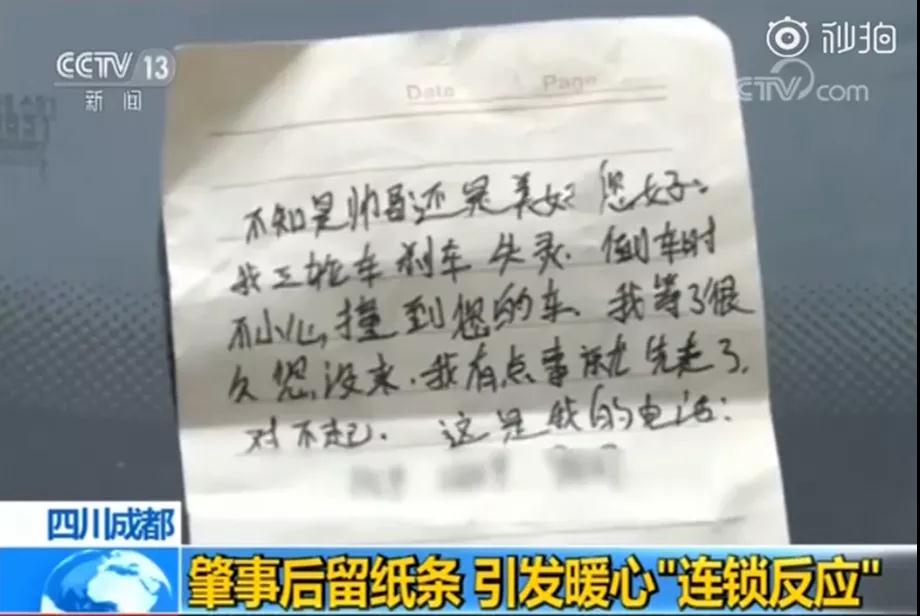 CCTV 13
新闻
秒拍
CCTV.com
Date Page
不知是帅哥还是美女 您好:
我三轮车刹车失灵. 倒车时
不小心撞到您的车. 我等了很
久您没来. 我有点事就先走了.
对不起. 这是我的电话:
四川成都
肇事后留纸条 引发暖心"连锁反应"